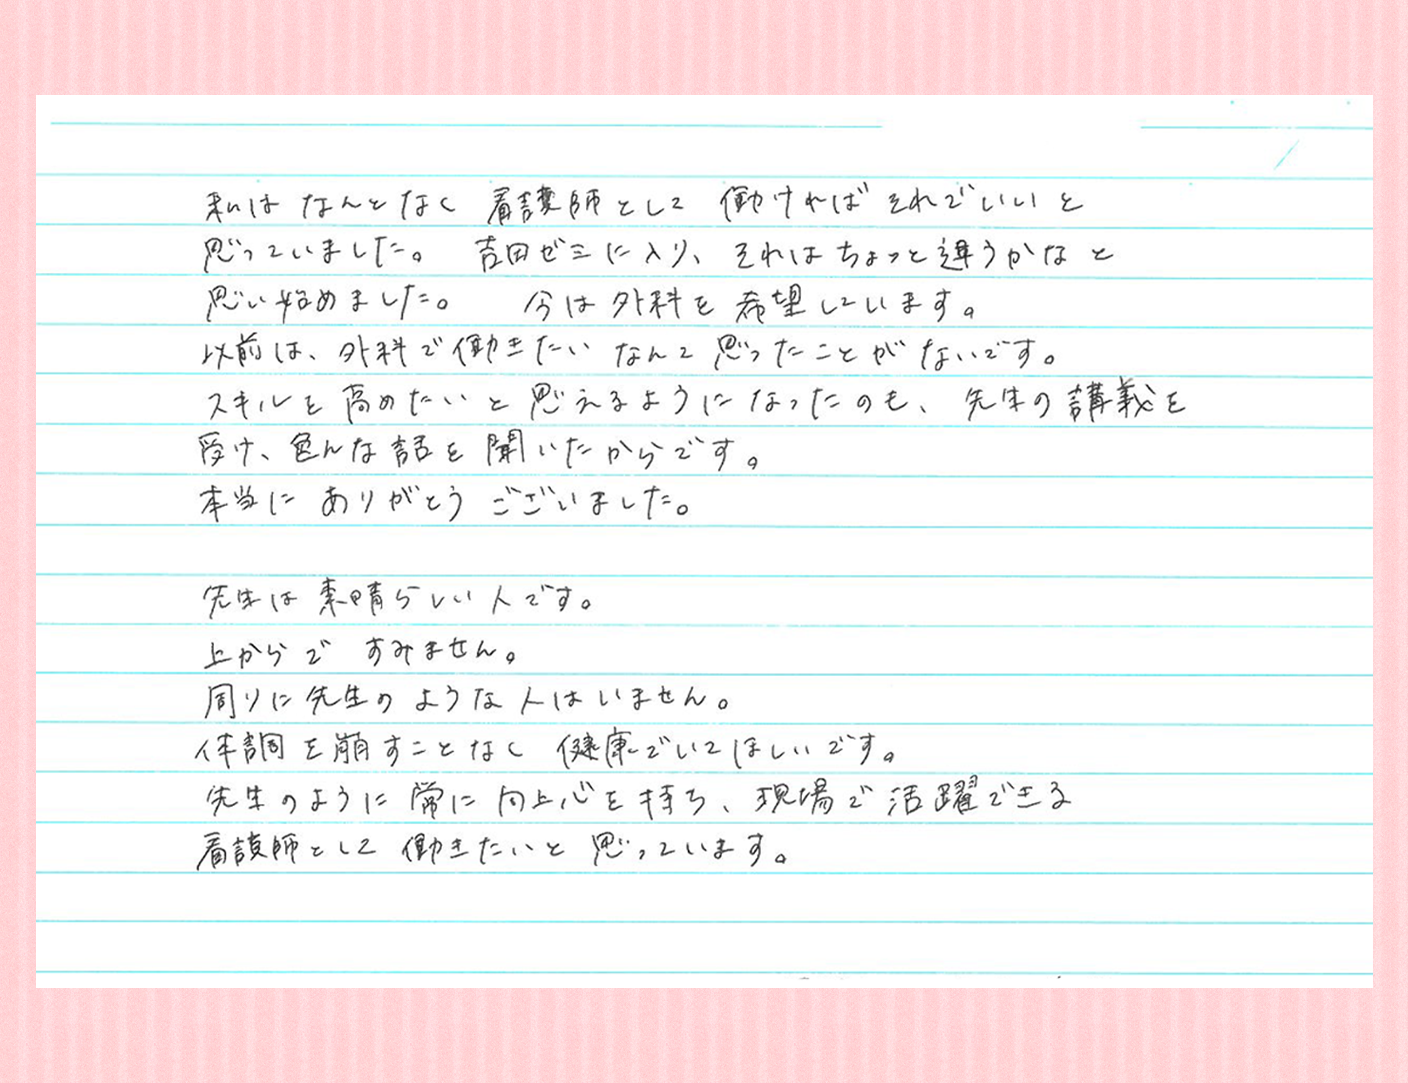 私はなんとなく 看護師として 働ければそれでいいと
思っていました。 吉田ゼミに入り、それはちょっと違うかなと
思い始めました。 今は外科を希望しています。
以前は、外科で働きたいなんて思ったことがないです。
スキルを高めたいと思えるようになったのも、先生の講義を
受け、色んな話を聞いたからです。
本当にありがとうございました。
先生は素晴らしい人です。
上からで すみません。
周りに先生のような人はいません。
体調を崩すことなく 健康でいてほしいです。
先生のように常に向上心を持ち、現場で活躍できる
看護師として 働きたいと思っています。